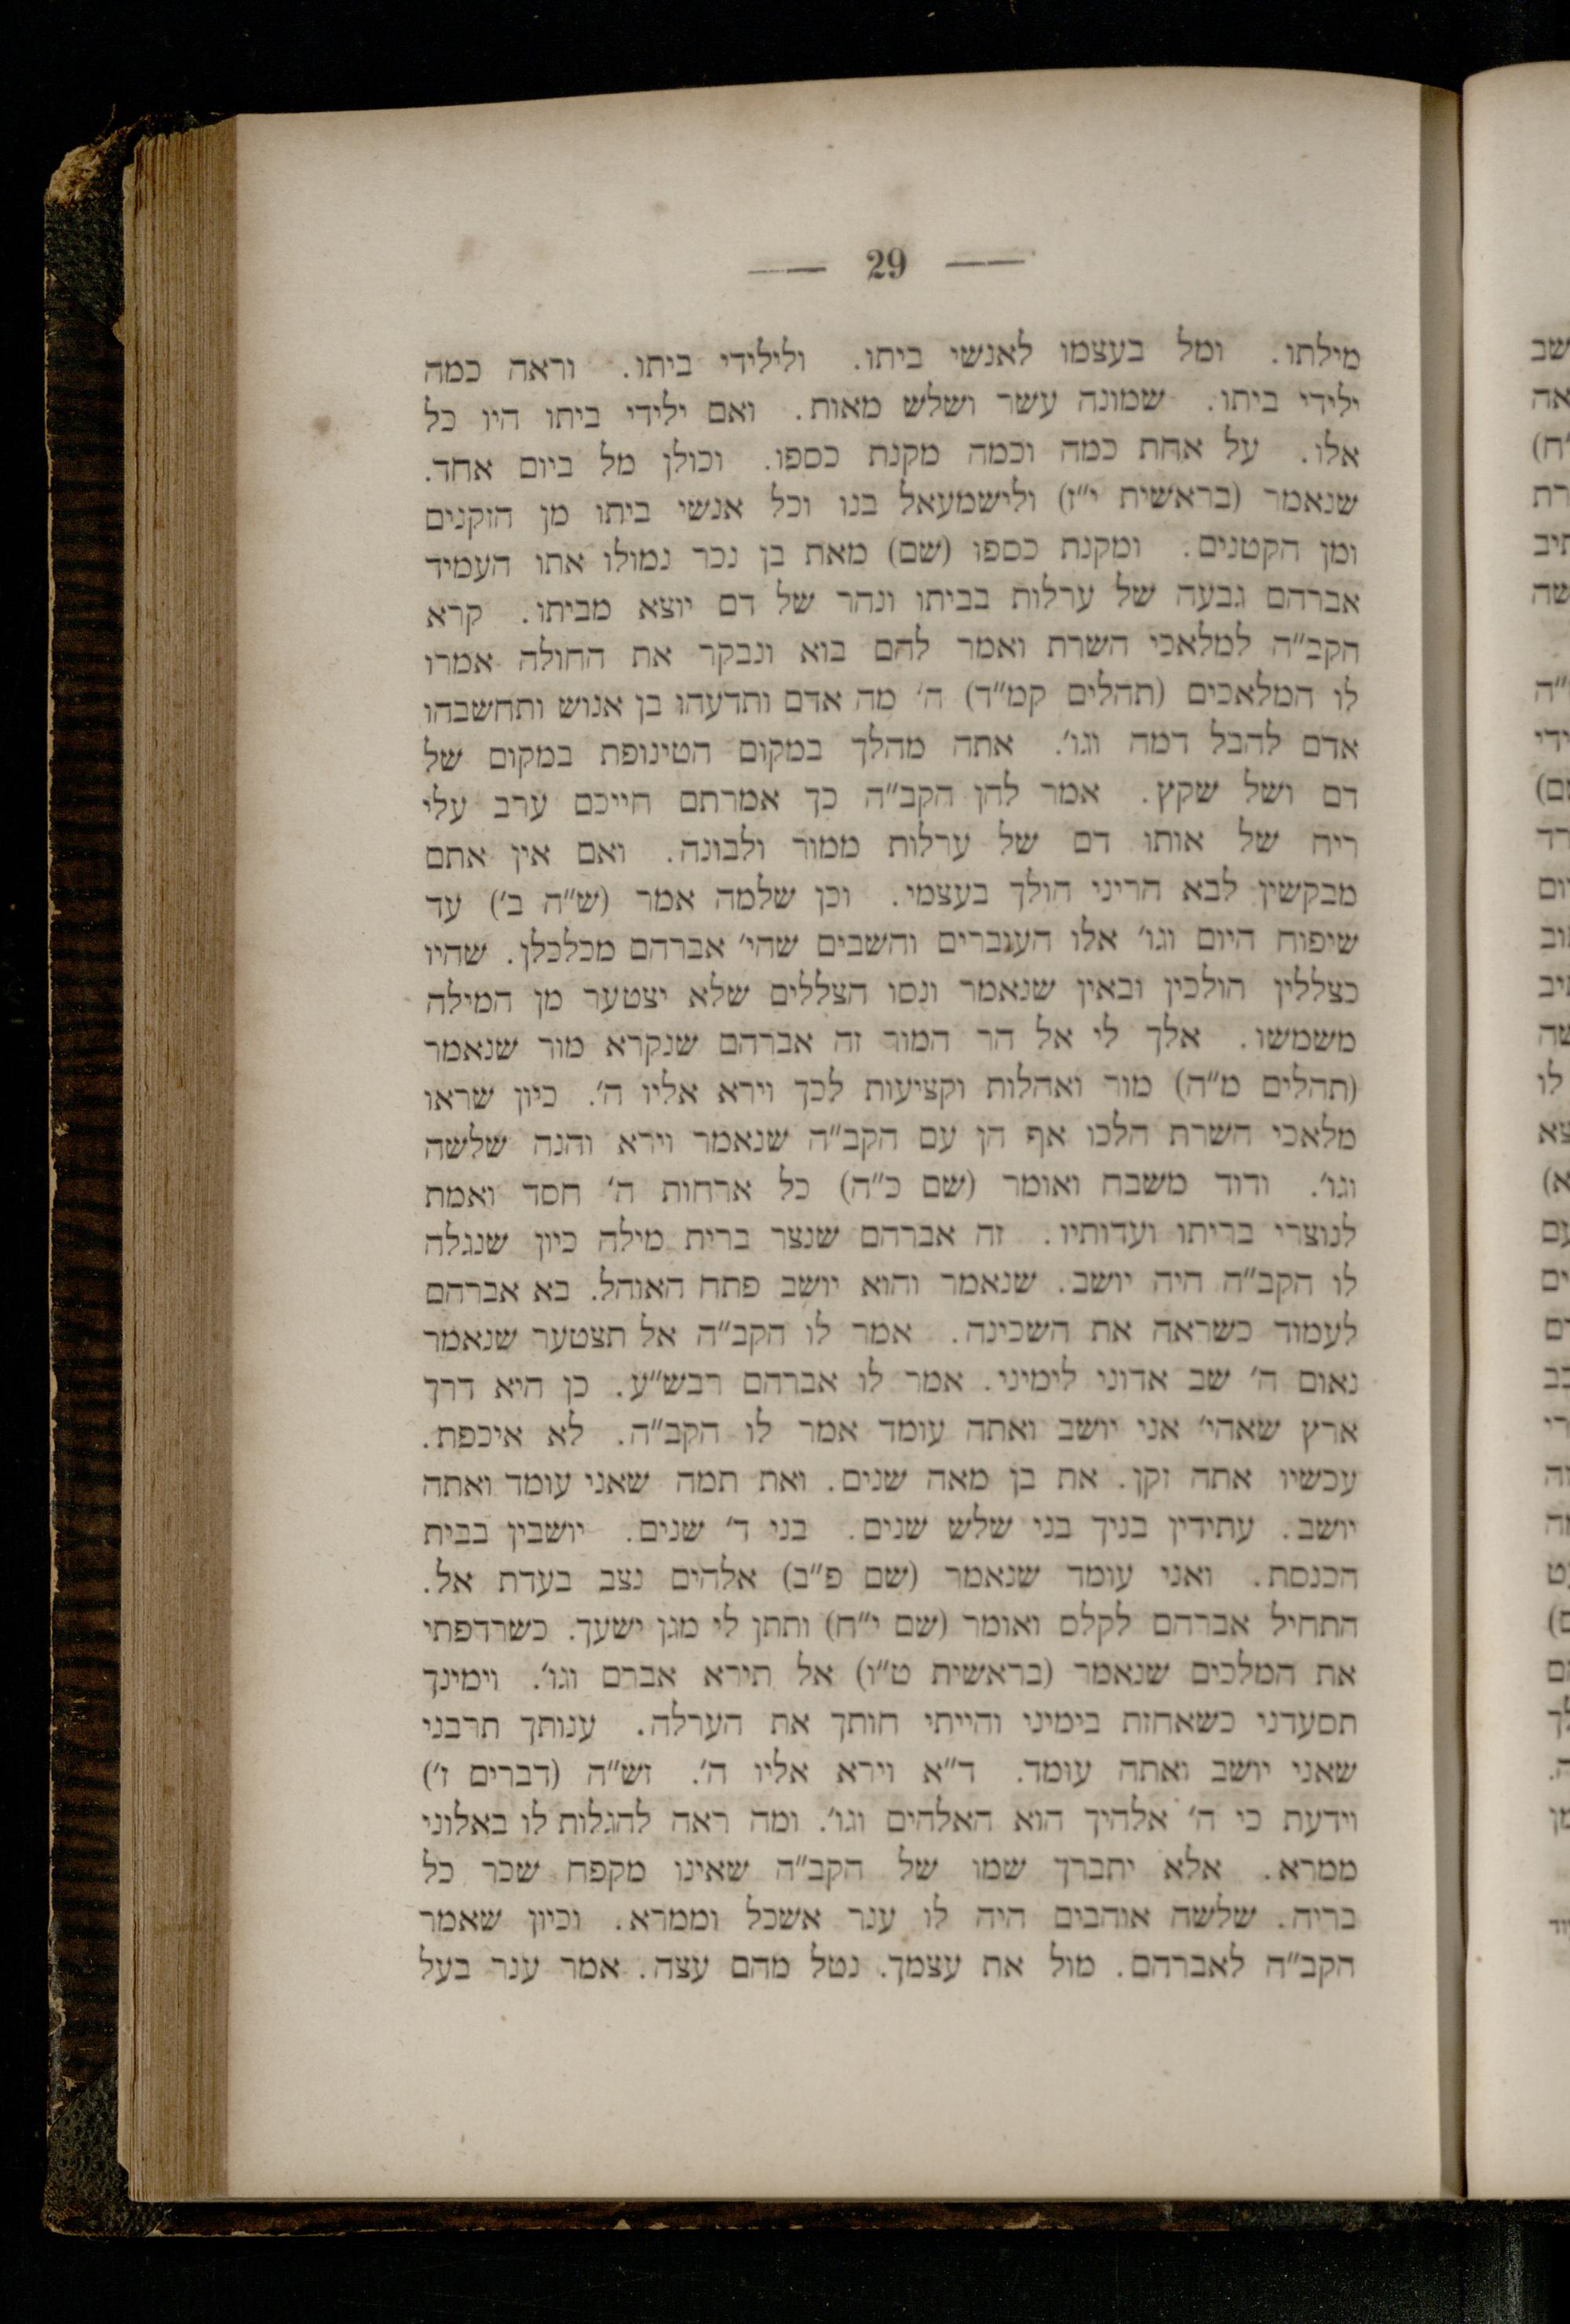 — 29 —
מילתו. ומל בעצמו לאנשי ביתו. ולילידי ביתו. וראה כמה
ילידי ביתו. שמונה עשר ושלש מאות. ואם ילידי ביתו היו כל
אלו. על אחת כמה וכמה מקנת כספו. וכולן מל ביום אחד.
שנאמר (בראשית י"ז) ולישמעאל בנו וכל אנשי ביתו מן הזקנים
ומן הקטנים. ומקנת כספו (שם) מאת בן נכר נמולו אתו העמיד
אברהם גבעה של ערלות בביתו ונהר של דם יוצא מביתו. קרא
הקב"ה למלאכי השרת ואמר להם בוא ונבקר את החולה אמרו
לו המלאכים (תהלים קמ"ד) ה' מה אדם ותדעהו בן אנוש ותחשבהו
אדם להבל דמה וגו'. אתה מהלך במקום הטינופת במקום של
דם ושל שקץ. אמר להן הקב"ה כך אמרתם חייכם ערב עלי
ריח של אותו דם של ערלות ממור ולבונה. ואם אין אתם
מבקשין לבא הריני הולך בעצמי. וכן שלמה אמר (ש"ה ב') עד
שיפוח היום וגו' אלו העוברים והשבים שהי' אברהם מכלכלן. שהיו
כצללין הולכין ובאין שנאמר ונסו הצללים שלא יצטער מן המילה
משמשו. אלך לי אל הר המור זה אברהם שנקרא מור שנאמר
(תהלים מ"ה) מור ואהלות וקציעות לכך וירא אליו ה'. כיון שראו
מלאכי השרת הלכו אף הן עם הקב"ה שנאמר וירא והנה שלשה
וגו'. ודוד משבח ואומר (שם כ"ה) כל ארחות ה' חסד ואמת
לנוצרי בריתו ועדותיו. זה אברהם שנצר ברית מילה כיון שנגלה
לו הקב"ה היה יושב. שנאמר והוא יושב פתח האוהל. בא אברהם
לעמוד כשראה את השכינה. אמר לו הקב"ה אל תצטער שנאמר
נאום ה' שב אדוני לימיני. אמר לו אברהם רבש"ע. כן היא דרך
ארץ שאהי' אני יושב ואתה עומד אמר לו הקב"ה. לא איכפת.
עכשיו אתה זקן. את בן מאה שנים. ואת תמה שאני עומד ואתה
יושב. עתידין בניך בני שלש שנים. בני ד' שנים. יושבין בבית
הכנסת. ואני עומד שנאמר (שם פ"ב) אלהים נצב בעדת אל.
התחיל אברהם לקלס ואומר (שם י"ח) ותתן לי מגן ישעך. כשרדפתי
את המלכים שנאמר (בראשית ט"ו) אל תירא אברם וגו'. וימינך
תסעדני כשאחזת בימיני והייתי חותך את הערלה. ענותך תרבני
שאני יושב ואתה עומד. ד"א וירא אליו ה'. זש"ה (דברים ז')
וידעת כי ה' אלהיך הוא האלהים וגו'. ומה ראה להגלות לו באלוני
ממרא. אלא יתברך שמו של הקב"ה שאינו מקפח שכר כל
בריה. שלשה אוהבים היה לו ענר אשכל וממרא. וכיון שאמר
הקב"ה לאברהם. מול את עצמך. נטל מהם עצה. אמר ענר בעל